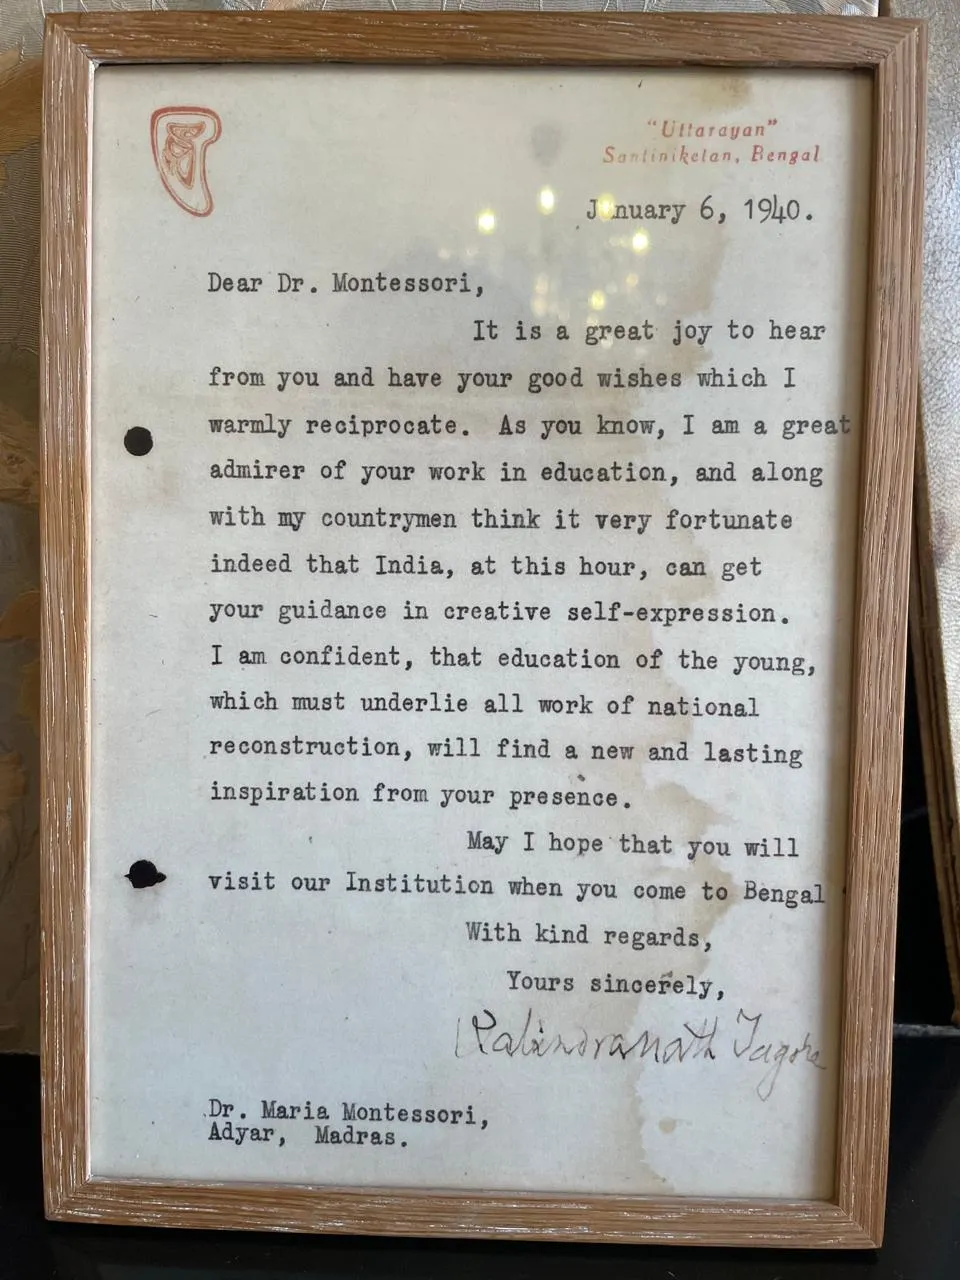 "Uttarayan"
Santiniketan, Bengal
January 6, 1940.
Dear Dr. Montessori,
It is a great joy to hear
from you and have your good wishes which I
warmly reciprocate. As you know, I am a great
admirer of your work in education, and along
with my countrymen think it very fortunate
indeed that India, at this hour, can get
your guidance in creative self-expression.
I am confident, that education of the young,
which must underlie all work of national
reconstruction, will find a new and lasting
inspiration from your presence.
May I hope that you will
visit our Institution when you come to Bengal
With kind regards,
Yours sincerely,
Rabindranath Tagore
Dr. Maria Montessori,
Adyar, Madras.